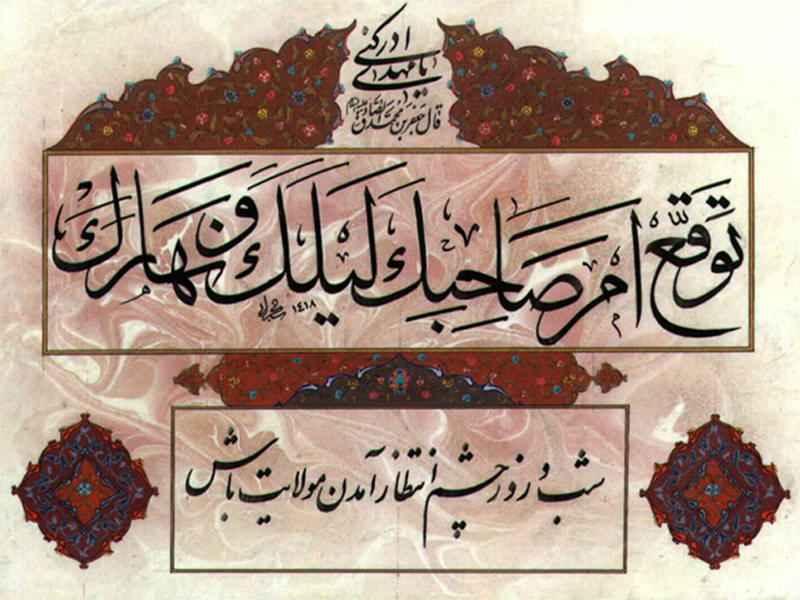 يا مهدي ادركني
قال جعفر بن محمد الصادق
توقّع امر صاحبك ليلك و نهارك
١٤١٨
شب و روز چشم انتظار آمدن مولایت باش